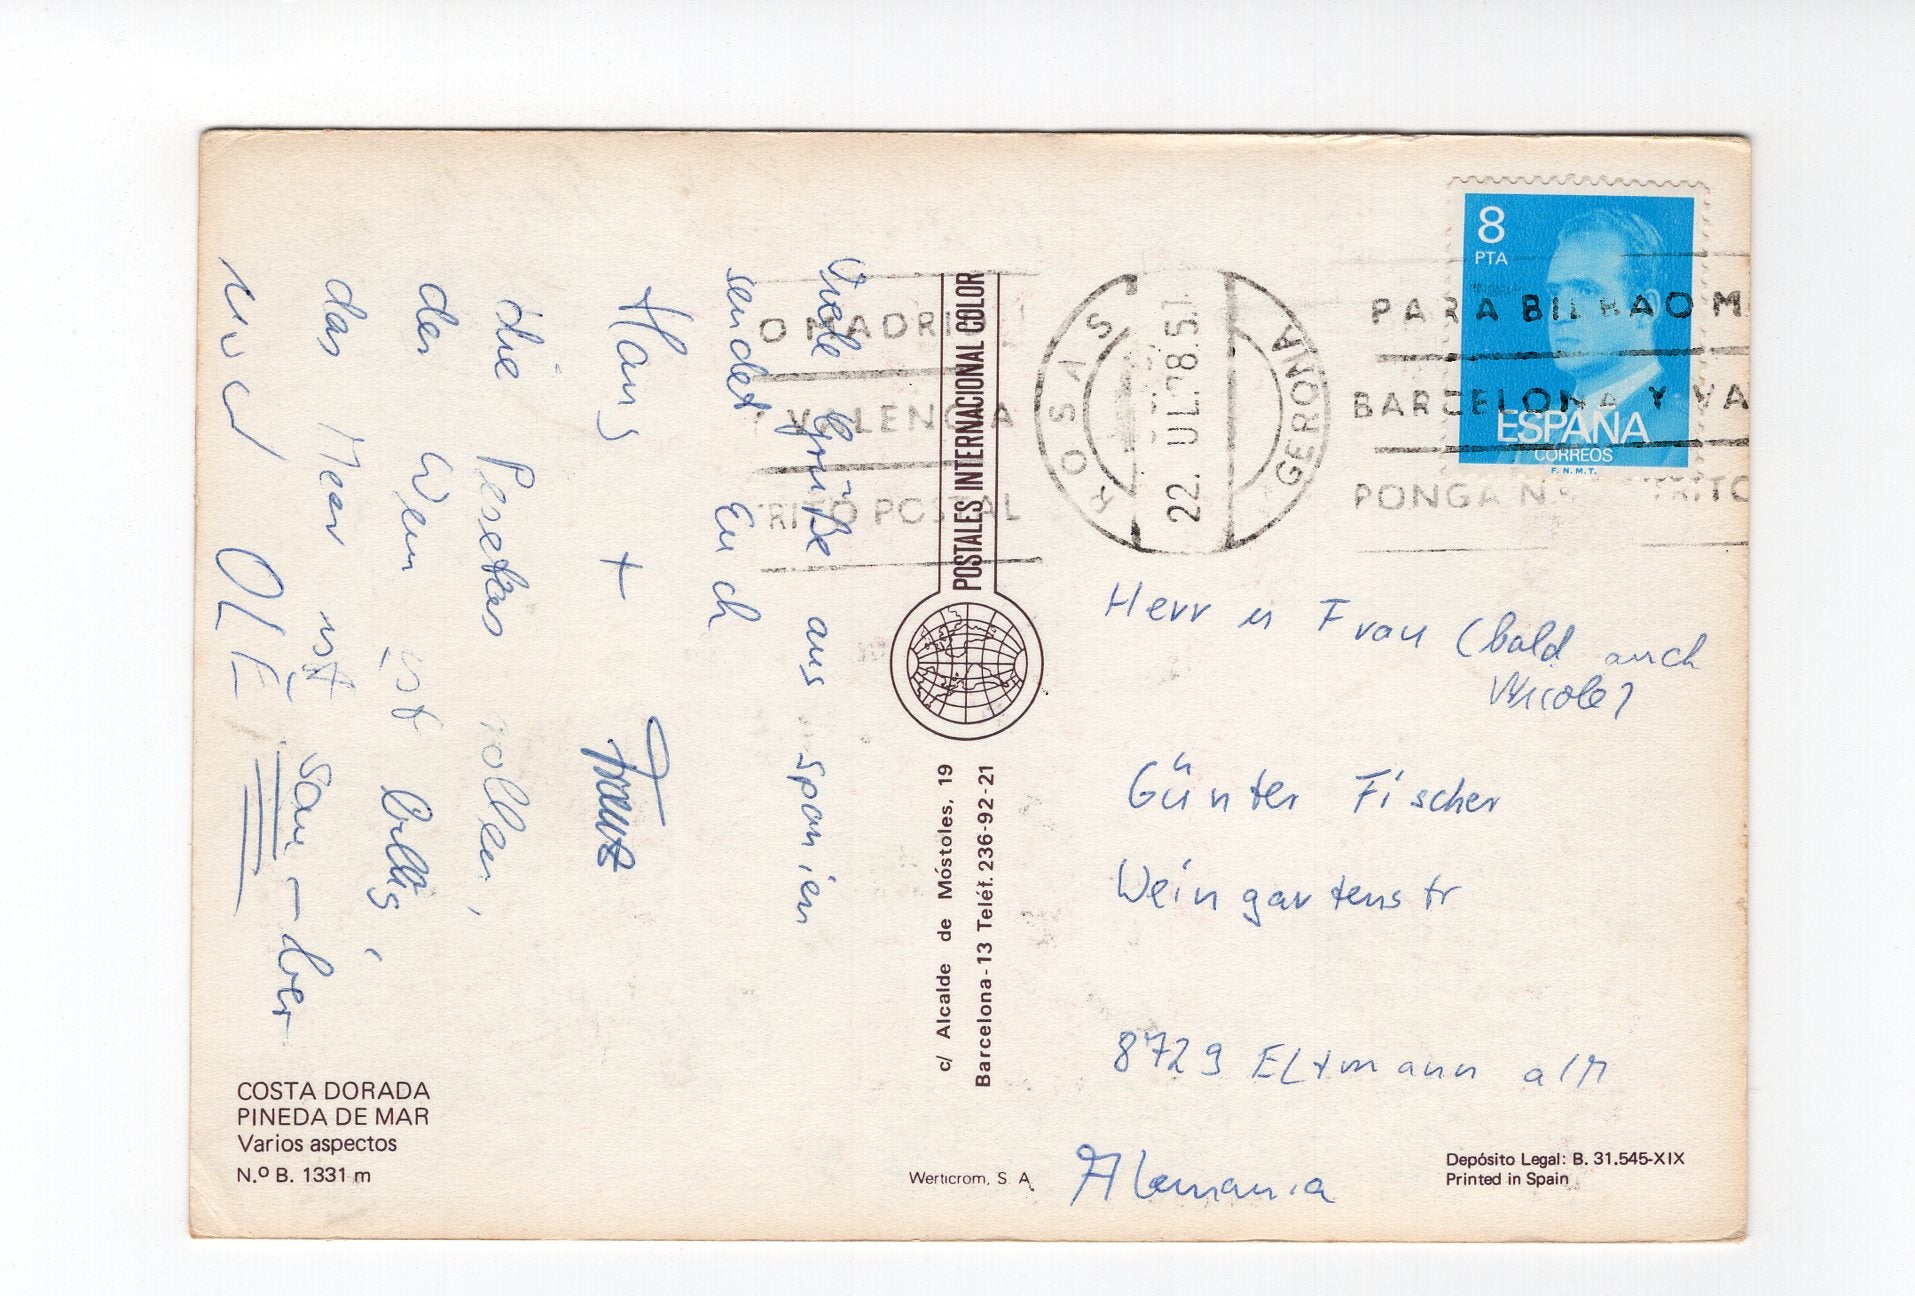 Viele Grüße aus Spanien
sendet Euch
Hans +
die Peseten rollen,
der Wein ist billig,
das Meer ist sau-ber
und OLÉ
COSTA DORADA
PINEDA DE MAR
Varios aspectos
N.º B. 1331 m
POSTALES INTERNACIONAL COLOR
c/ Alcalde de Móstoles, 19
Barcelona-13 Teléf. 236-92-21
Werticrom, S. A.
O MADRID
VALENCIA
TRITO POSTAL
ROSAS
22. UL.78.5
GERONA
8
PTA
ESPAÑA
CORREOS
F.N.M.T.
PARA BILBAO M
BARCELONA Y VA
PONGA TRITO
Herr u Frau (bald auch
Nicole)
Günter Fischer
Weingartenstr
8729 Eltmann a/M
Alemania
Depósito Legal: B. 31.545-XIX
Printed in Spain